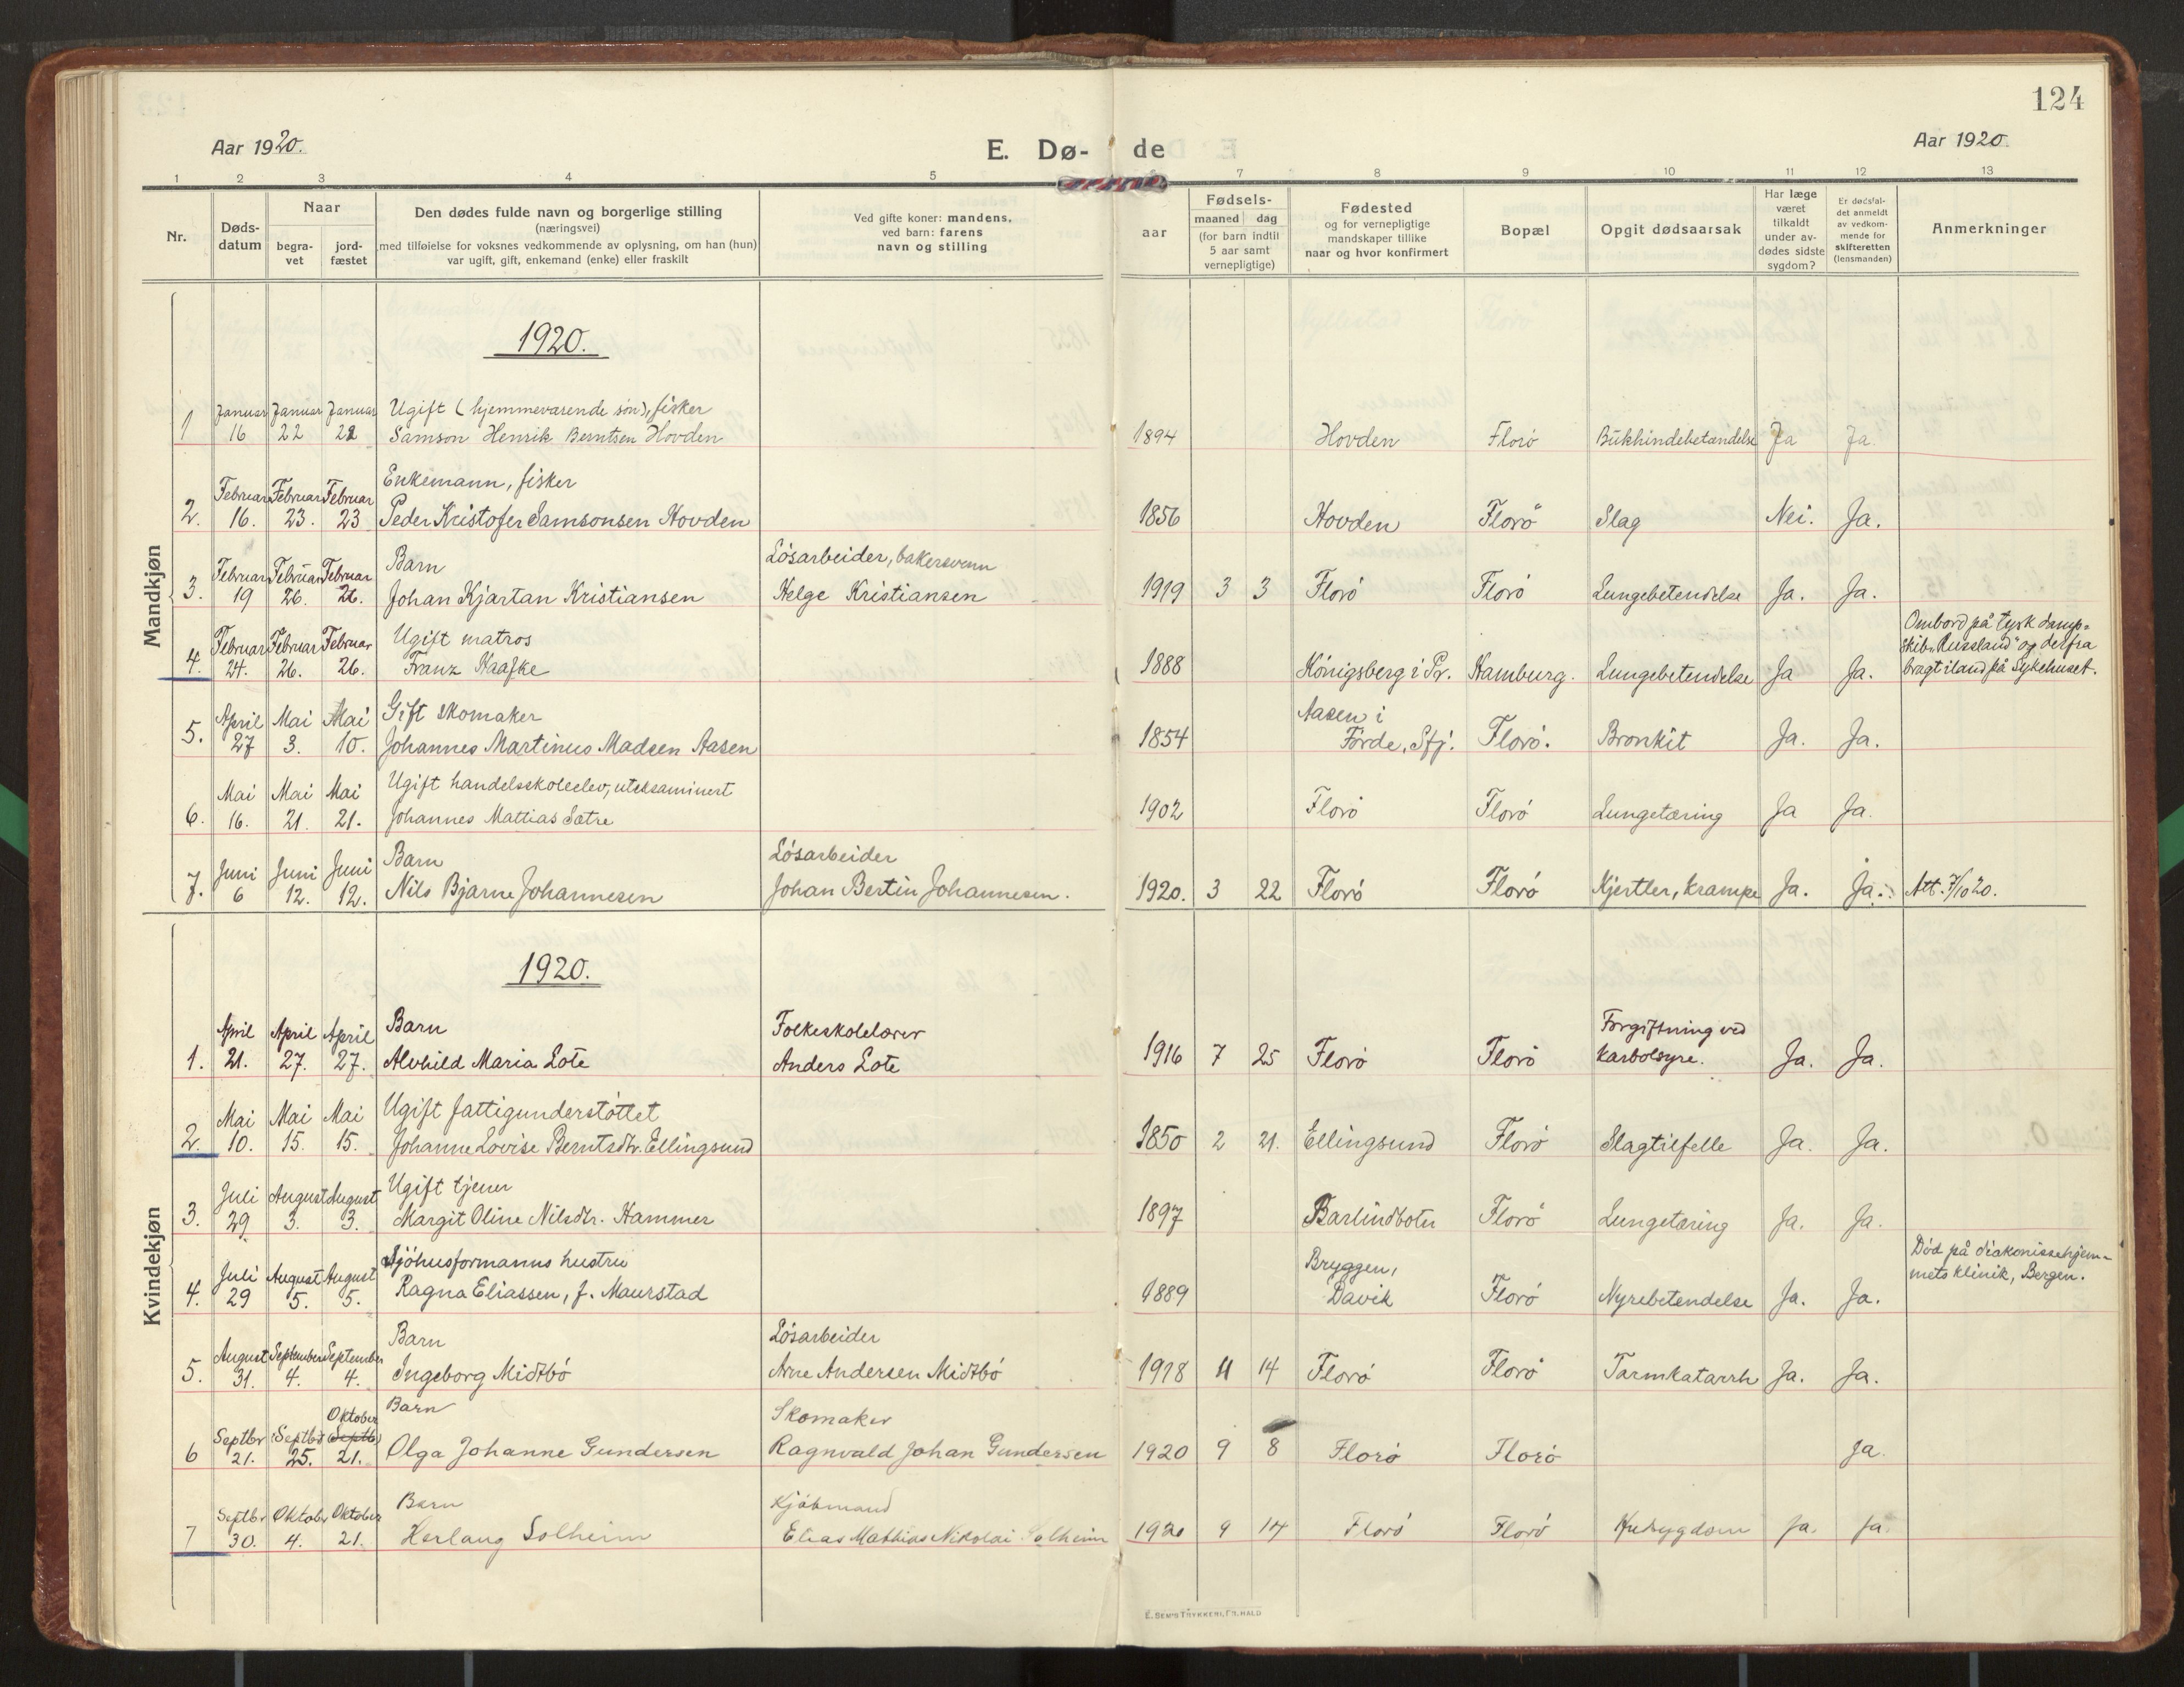 124
Aar 1920.
E. Dø-
de
Aar 1920.
1 2 3 4 5 7 8 9 10 11 12 13
Nr.
Døds-
datum
Naar
begra-
vet
jord-
fæstet
Den dødes fulde navn og borgerlige stilling
(næringsvei)
med tilføielse for voksnes vedkommende av oplysning, om han (hun)
var ugift, gift, enkemand (enke) eller fraskilt
Ved gifte koner: mandens,
ved barn: farens
navn og stilling
Fødsels-
aar
maaned dag
(for barn indtil
5 aar samt
vernepligtige)
Fødested
og for vernepligtige
mandskaper tillike
naar og hvor konfirmert
Bopæl
Opgit dødsaarsak
Har læge
været
tilkaldt
under av-
dødes sidste
sygdom?
Er dødsfal-
det anmeldt
av vedkom-
mende for
skifteretten
(lensmanden)
Anmerkninger
Mandkjøn
1920.
Januar Januar Januar Ugift (hjemmevarende søn), fisker
1 16 22 22 Samson Henrik Berntsen Hovden 1894 Hovden Florø Bukhindebetændelse Ja Ja.
Februar Februar Februar Enkemann, fisker
2. 16. 23. 23 Peder Kristofer Samsonsen Hovden 1856 Hovden Florø Slag Nei. Ja.
Februar Februar Februar Barn Løsarbeider, bakersvenn
3. 19 26. 26. Johan Kjartan Kristiansen Helge Kristiansen 1919 3 3 Florø Florø Lungebetendelse Ja. Ja.
Februar Februar Februar Ugift matros Ombord på tysk damp-
skib „Russland" og derfra
4. 24. 26. 26. Franz Haafke 1888 Königsberg i Pr. Hamburg. Lungebetendelse Ja Ja. bragt iland på Sykehuset.
April Mai Mai Gift skomaker Aasen i
5. 27 3. 10. Johannes Martinus Madsen Aasen 1854 Førde, Sfj. Florø. Bronkit Ja. Ja.
Mai Mai Mai Ugift handelsskoleelev, uteksaminert
6. 16. 21. 21. Johannes Mattias Sætre 1902 Florø Florø Lungetæring Ja Ja.
Juni Juni Juni Barn Løsarbeider
7. 6 12. 12. Nils Bjarne Johannesen Johan Bertin Johannesen. 1920. 3 22 Florø Florø Kjertler, krampe Ja. Ja. Att. 7/10 20.
Kvindekjøn
1920.
April April April Barn Folkeskolelærer Forgiftning ved
1. 21. 27. 27. Alvhild Maria Lote Anders Lote 1916 7 25 Florø Florø karbolsyre. Ja. Ja.
Mai Mai Mai Ugift fattigunderstøttet
2. 10. 15. 15. Johanne Lovise Berntsdtr. Ellingsund 1850 2 21. Ellingsund Florø Slagtilfelle Ja. Ja.
Juli August August Ugift tjener
3. 29 3. 3. Margit Oline Nilsdtr. Hammer 1897 Barlindbotn Florø Lungetæring Ja. Ja.
Juli August August Sjøhusformanns hustru Bryggen, Død på diakonissehjem-
mets klinik, Bergen.
4. 29 5. 5. Ragna Eliassen, f. Maurstad 1889 Davik Florø Nyrebetendelse Ja. Ja.
August September September Barn Løsarbeider
5. 31. 4. 4. Ingeborg Midtbø Arne Andersen Midtbø 1918 11 14 Florø Florø Tarmkatarrh Ja. Ja.
Oktober
Septbr Septbr (Septb) Barn Skomaker
6 21. 25. 21. Olga Johanne Gundersen Ragnvald Johan Gundersen 1920 9 8 Florø Florø Ja.
Septbr Oktobr Oktober Barn Kjøbmand
7 30. 4. 21. Herlaug Solheim Elias Mathias Nikolai Solheim 1920 9 14 Florø Florø Ja. Ja.
E. SEM'S TRYKKERI, FR.HALD